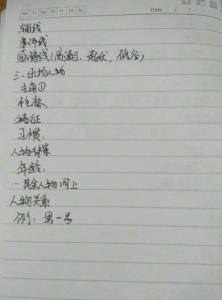 辅线
事件线
感情线(高潮、起伏、低谷)
三、出场人物
主角①
性格、
特征
习惯、
人物背景
年龄:
…其余人物同上
人物关系
例:男一号